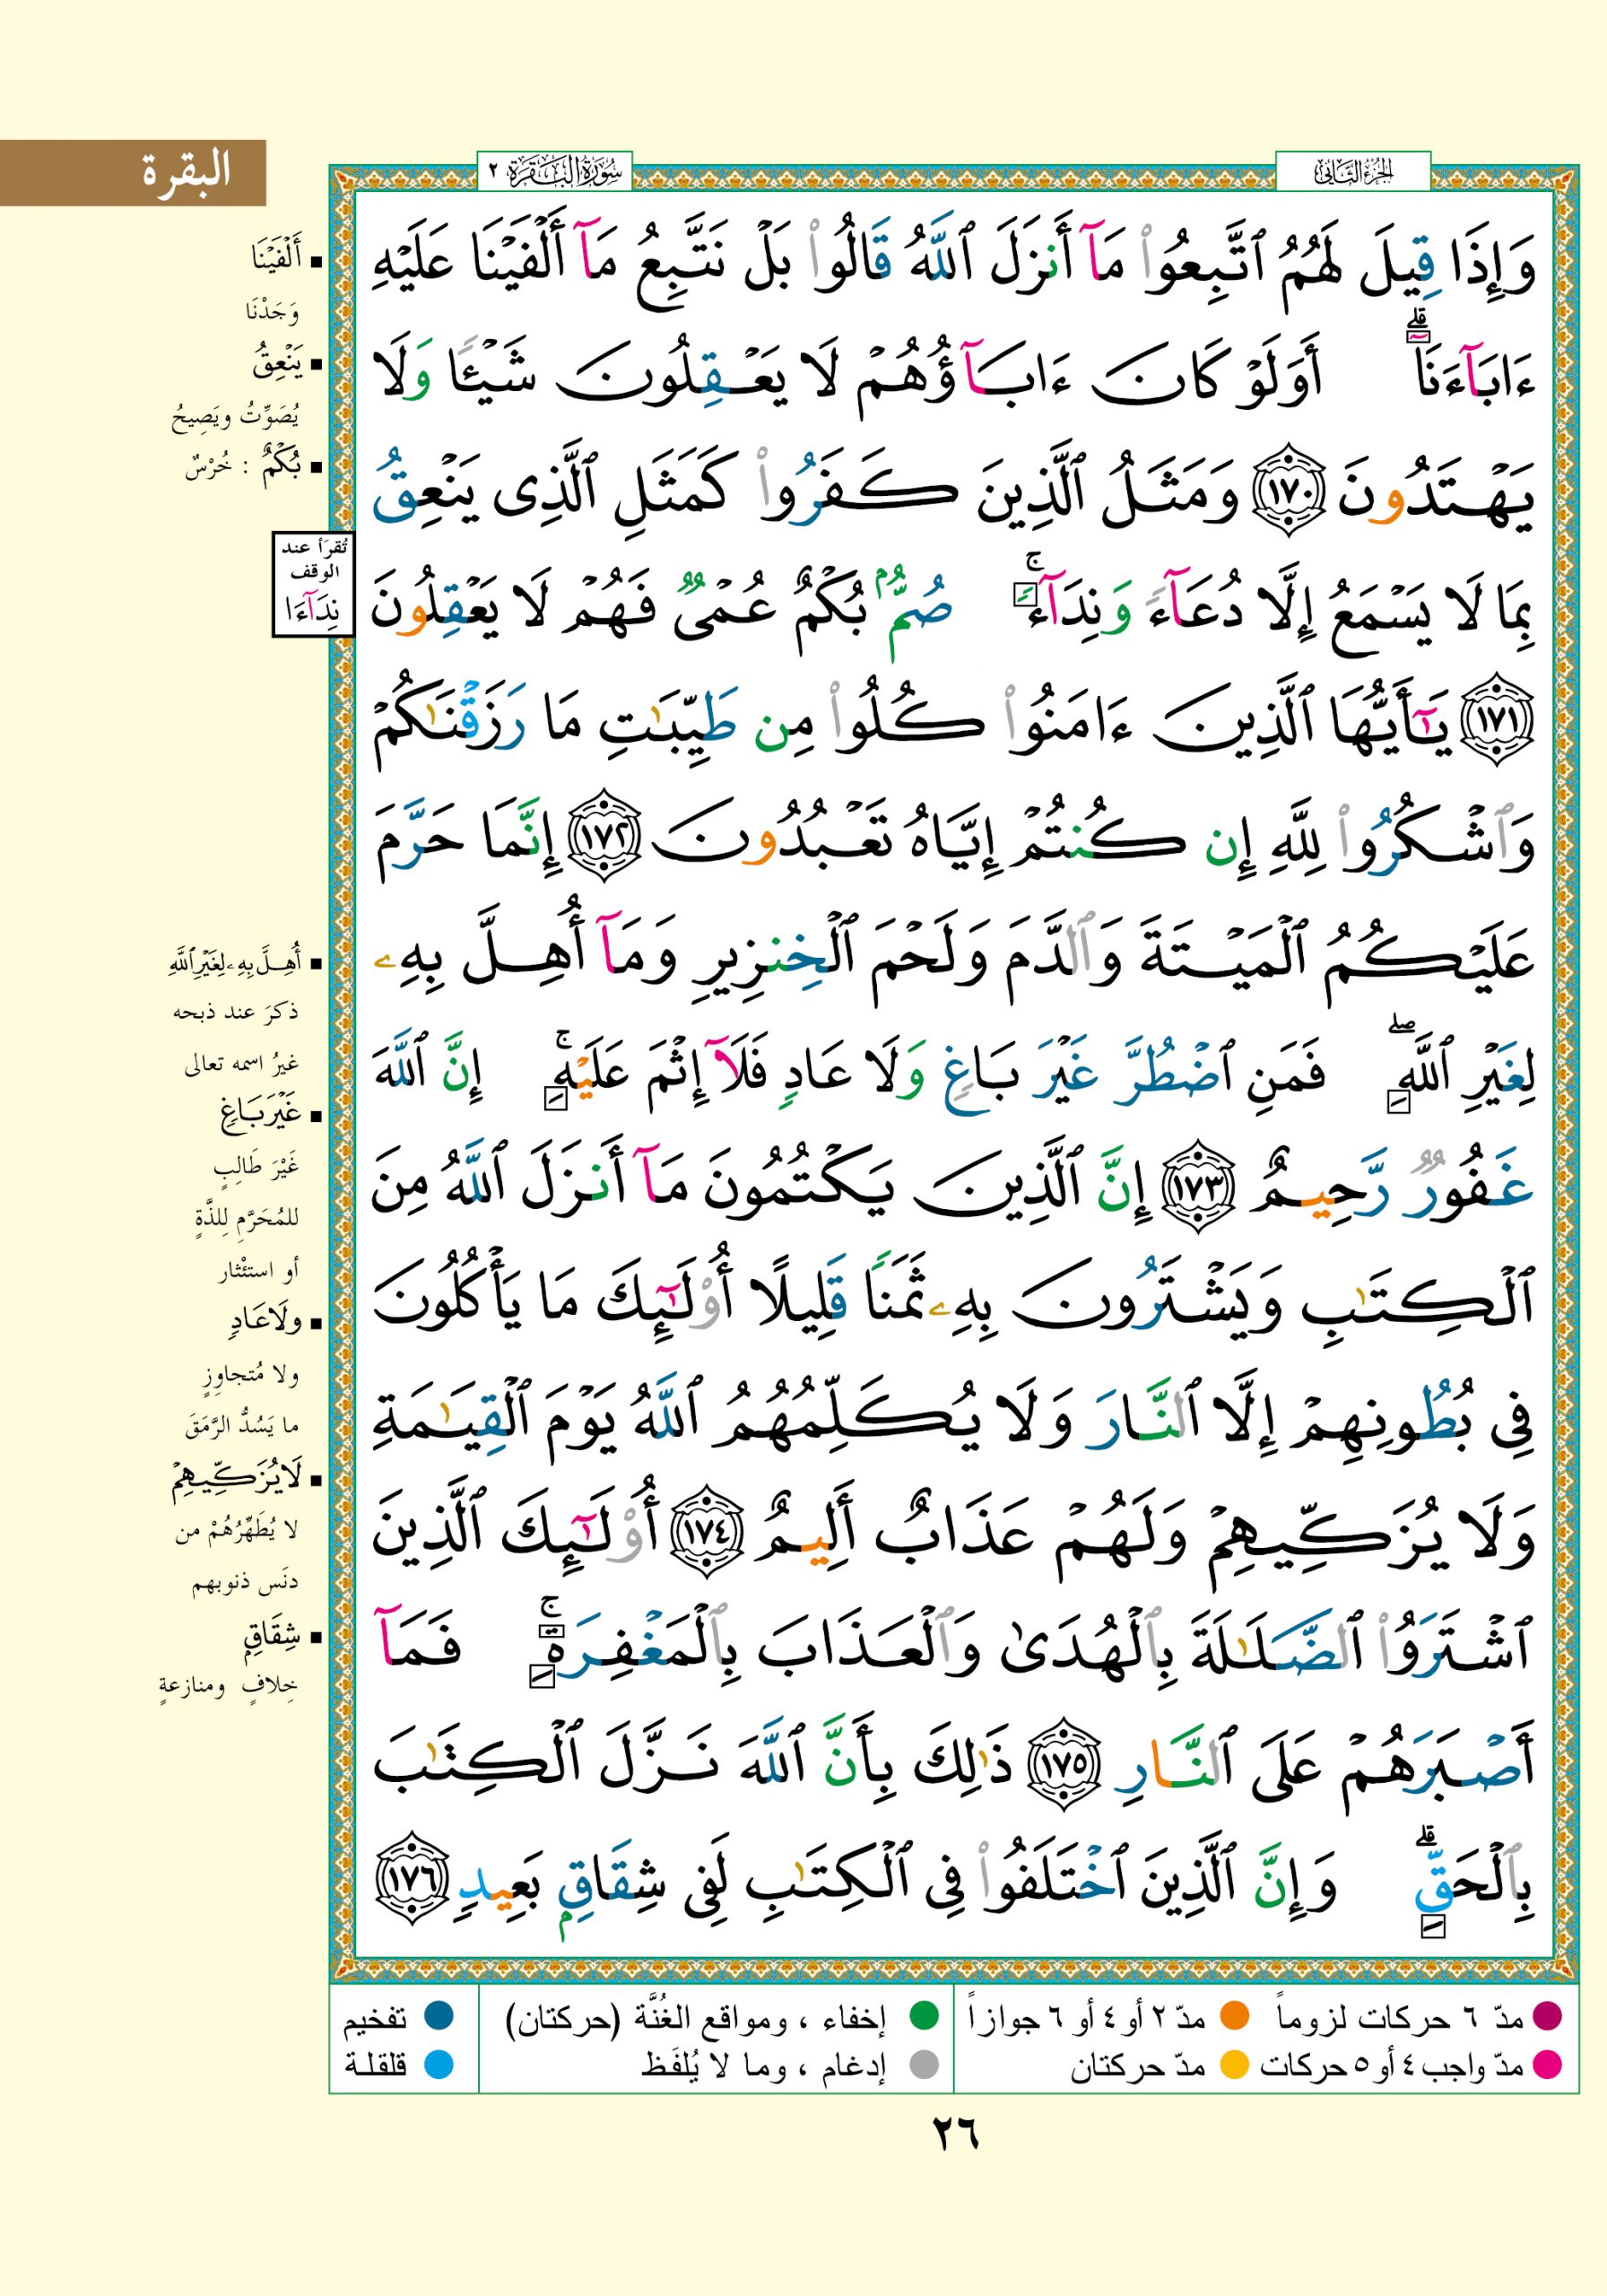 البقرة
سُورَةُ البَقَرَةِ ٢
الجُزءُ الثَّانِي
وَإِذَا قِيلَ لَهُمُ ٱتَّبِعُوا۟ مَآ أَنزَلَ ٱللَّهُ قَالُوا۟ بَلْ نَتَّبِعُ مَآ أَلْفَيْنَا عَلَيْهِ
ءَابَآءَنَآ ۗ أَوَلَوْ كَانَ ءَابَآؤُهُمْ لَا يَعْقِلُونَ شَيْـًٔا وَلَا
يَهْتَدُونَ ١٧٠ وَمَثَلُ ٱلَّذِينَ كَفَرُوا۟ كَمَثَلِ ٱلَّذِى يَنْعِقُ
بِمَا لَا يَسْمَعُ إِلَّا دُعَآءً وَنِدَآءً ۚ صُمٌّۢ بُكْمٌ عُمْىٌ فَهُمْ لَا يَعْقِلُونَ
١٧١ يَـٰٓأَيُّهَا ٱلَّذِينَ ءَامَنُوا۟ كُلُوا۟ مِن طَيِّبَـٰتِ مَا رَزَقْنَـٰكُمْ
وَٱشْكُرُوا۟ لِلَّهِ إِن كُنتُمْ إِيَّاهُ تَعْبُدُونَ ١٧٢ إِنَّمَا حَرَّمَ
عَلَيْكُمُ ٱلْمَيْتَةَ وَٱلدَّمَ وَلَحْمَ ٱلْخِنزِيرِ وَمَآ أُهِلَّ بِهِۦ
لِغَيْرِ ٱللَّهِ ۖ فَمَنِ ٱضْطُرَّ غَيْرَ بَاغٍ وَلَا عَادٍ فَلَآ إِثْمَ عَلَيْهِ ۚ إِنَّ ٱللَّهَ
غَفُورٌ رَّحِيمٌ ١٧٣ إِنَّ ٱلَّذِينَ يَكْتُمُونَ مَآ أَنزَلَ ٱللَّهُ مِنَ
ٱلْكِتَـٰبِ وَيَشْتَرُونَ بِهِۦ ثَمَنًا قَلِيلًا أُو۟لَـٰٓئِكَ مَا يَأْكُلُونَ
فِى بُطُونِهِمْ إِلَّا ٱلنَّارَ وَلَا يُكَلِّمُهُمُ ٱللَّهُ يَوْمَ ٱلْقِيَـٰمَةِ
وَلَا يُزَكِّيهِمْ وَلَهُمْ عَذَابٌ أَلِيمٌ ١٧٤ أُو۟لَـٰٓئِكَ ٱلَّذِينَ
ٱشْتَرَوُا۟ ٱلضَّلَـٰلَةَ بِٱلْهُدَىٰ وَٱلْعَذَابَ بِٱلْمَغْفِرَةِ ۚ فَمَآ
أَصْبَرَهُمْ عَلَى ٱلنَّارِ ١٧٥ ذَٰلِكَ بِأَنَّ ٱللَّهَ نَزَّلَ ٱلْكِتَـٰبَ
بِٱلْحَقِّ ۗ وَإِنَّ ٱلَّذِينَ ٱخْتَلَفُوا۟ فِى ٱلْكِتَـٰبِ لَفِى شِقَاقٍۭ بَعِيدٍ ١٧٦
▪ أَلْفَيْنَا
وَجَدْنَا
▪ يَنْعِقُ
يُصَوِّتُ ويَصِيحُ
▪ بُكْمٌ : خُرْسٌ
تُقرَأ عند
الوقف
نِدَآءَا
▪ أُهِلَّ بِهِۦ لِغَيْرِ ٱللَّهِ
ذكرَ عند ذبحه
غيرُ اسمه تعالى
▪ غَيْرَ بَاغٍ
غَيْرَ طَالِبٍ
للمُحَرَّمِ لِلذَّةٍ
أو استئثار
▪ ولَا عَادٍ
ولا مُتجاوِزٍ
ما يَسُدُّ الرَّمَقَ
▪ لَا يُزَكِّيهِمْ
لا يُطَهِّرُهُمْ من
دنَس ذنوبهم
▪ شِقَاقٍ
خِلافٍ ومنازعةٍ
مدّ ٦ حركات لزوماً ● مدّ ٢ أو ٤ أو ٦ جوازاً ● إخفاء ، ومواقع الغُنَّة (حركتان) ● تفخيم
مدّ واجب ٤ أو ٥ حركات ● مدّ حركتان ● إدغام ، وما لا يُلفَظ ● قلقلة
٢٦